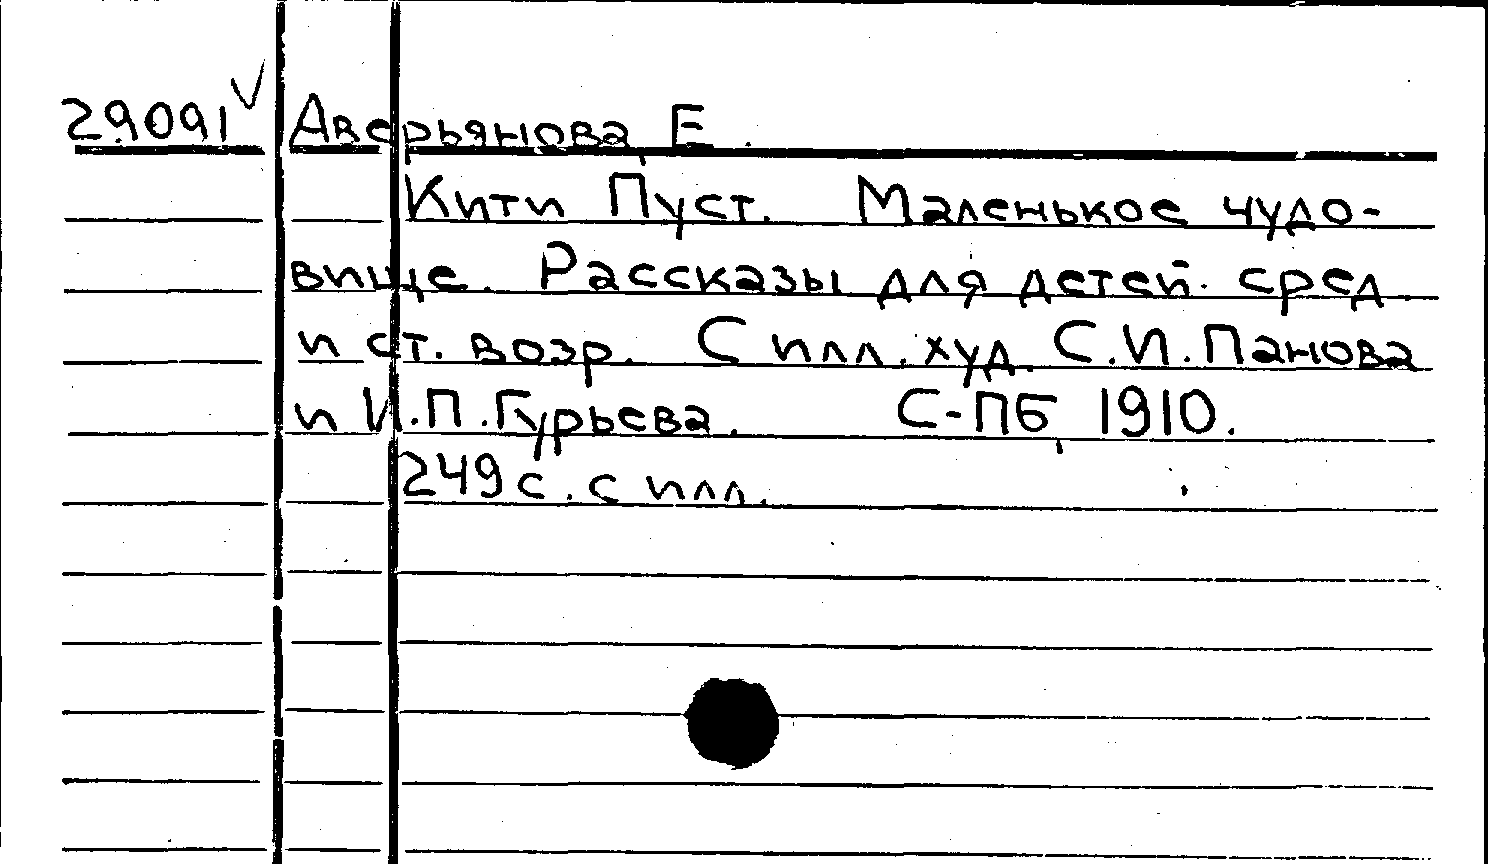 29091 ✓ Аверьянова, Е.
Кити Пуст. Маленькое чудо-
вище. Рассказы для детей сред
и ст. возр. С илл. худ. С.И.Панова
и И.П.Гурьева. С-ПБ, 1910.
249 с. с илл.